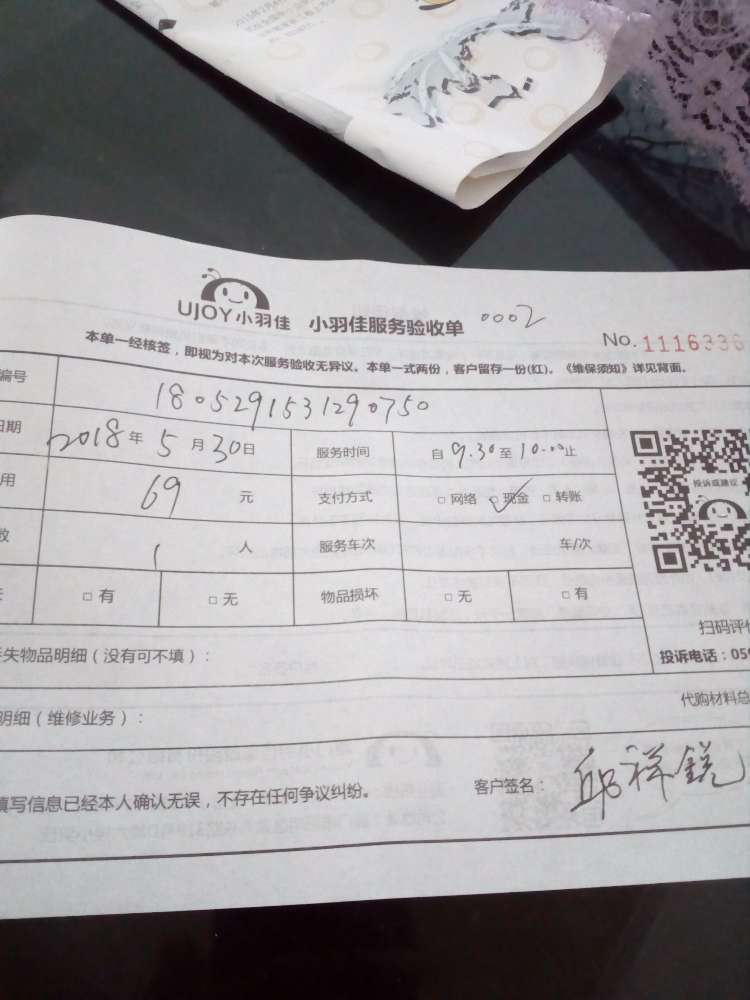 UJOY小羽佳 小羽佳服务验收单 0002
No. 1116336
本单一经核签，即视为对本次服务验收无异议。本单一式两份，客户留存一份(红)。《维保须知》详见背面。
编号 1805291531290750
日期 2018年5月30日 服务时间 自9.30至10.00止
用 69元 支付方式 □网络 ☑现金 □转账
数 1人 服务车次 车/次
□有 □无 物品损坏 □无 □有
投诉或建议
扫码评价
失物品明细（没有可不填）：
投诉电话：059
明细（维修业务）：
代购材料总
填写信息已经本人确认无误，不存在任何争议纠纷。
客户签名：邱祥锐